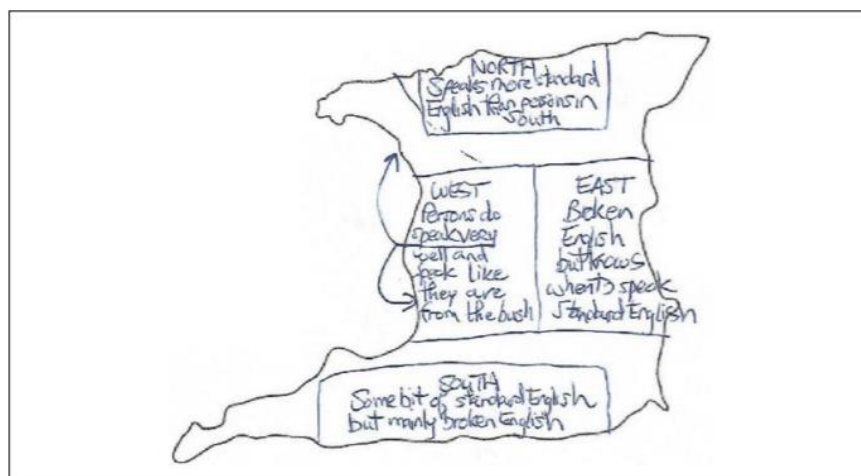 NORTH
Speaks more standard
English than persons in
South
WEST
Persons do
speak very
well and
like
they are
from the bush
EAST
Broken
English
but knows
when to speak
Standard English
SOUTH
Some bit of standard English
but mainly broken English